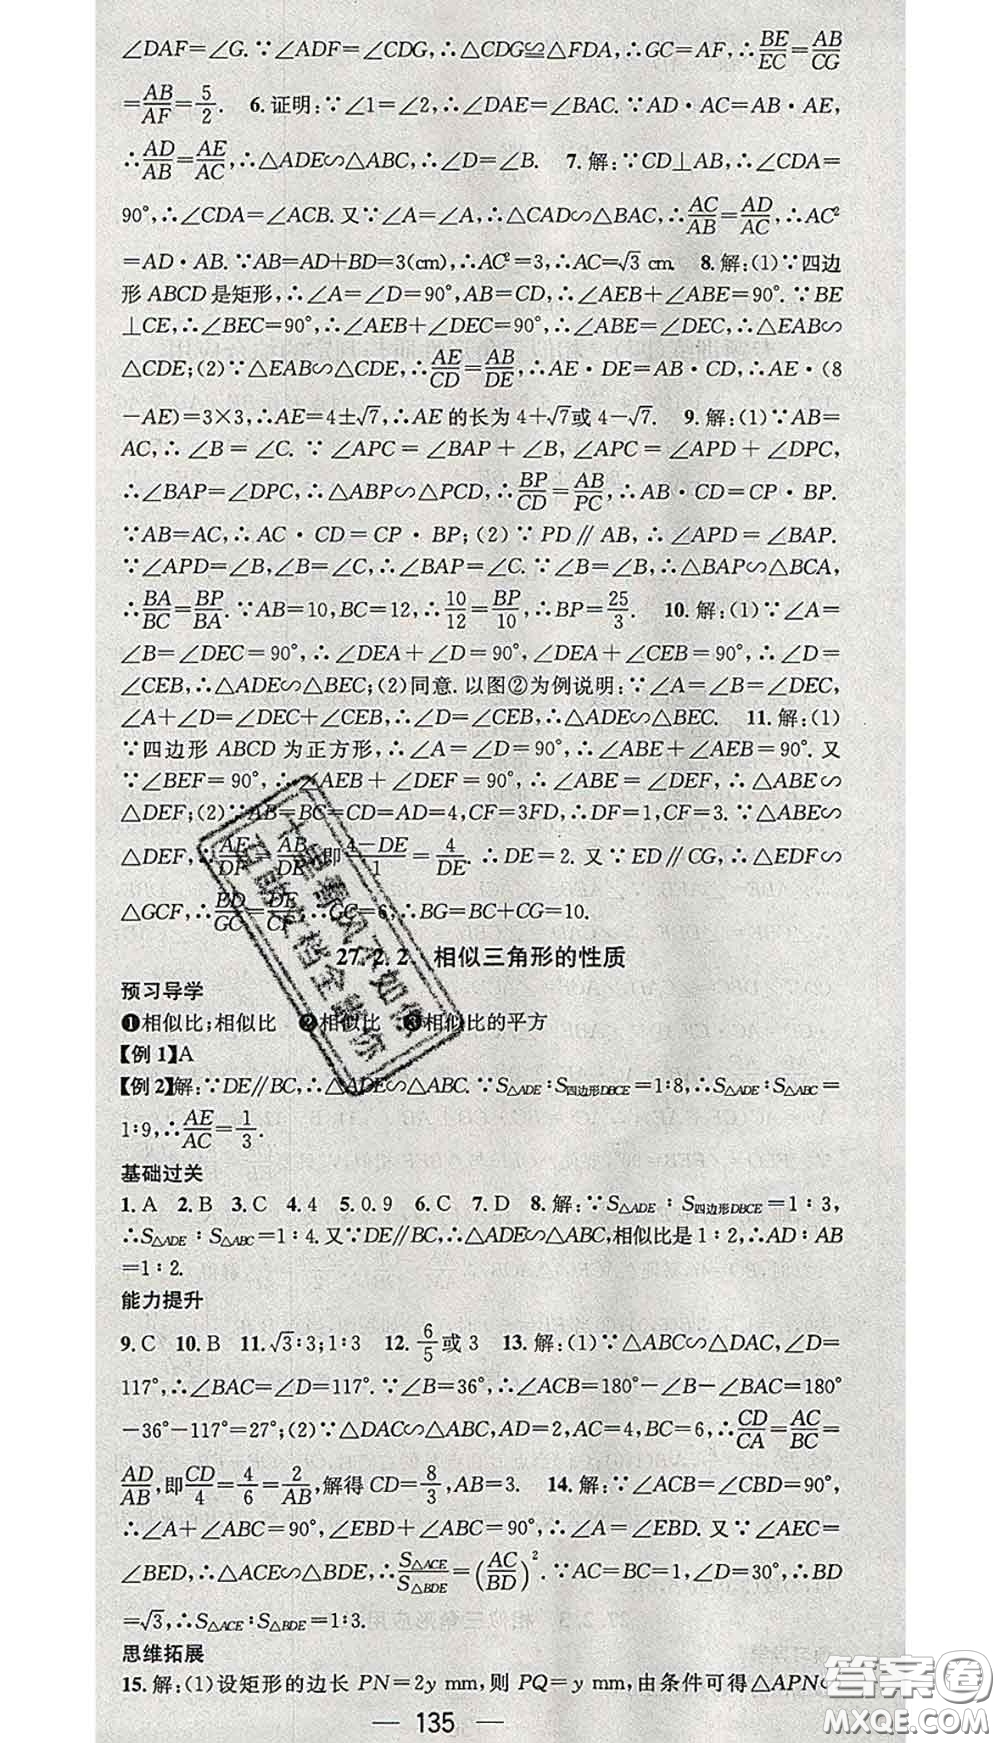 ∠DAF=∠G.∵∠ADF=∠CDG,∴△CDG≌△FDA,∴GC=AF,∴BE/EC=AB/CG
=AB/AF=5/2. 6.证明:∵∠1=∠2,∴∠DAE=∠BAC.∵AD·AC=AB·AE,
∴AD/AB=AE/AC,∴△ADE∽△ABC,∴∠D=∠B. 7.解:∵CD⊥AB,∴∠CDA=
90°,∴∠CDA=∠ACB.又∵∠A=∠A,∴△CAD∽△BAC,∴AC/AB=AD/AC,∴AC²
=AD·AB.∵AB=AD+BD=3(cm),∴AC²=3,∴AC=√3 cm. 8.解:(1)∵四边
形ABCD是矩形,∴∠A=∠D=90°,AB=CD,∴∠AEB+∠ABE=90°.∵BE
⊥CE,∴∠BEC=90°,∴∠AEB+∠DEC=90°,∴∠ABE=∠DEC,∴△EAB∽
△CDE;(2)∵△EAB∽△CDE,∴AE/CD=AB/DE,∴AE·DE=AB·CD,∴AE·(8
-AE)=3×3,∴AE=4±√7,∴AE的长为4+√7或4-√7. 9.解:(1)∵AB=
AC,∴∠B=∠C.∵∠APC=∠BAP+∠B,∠APC=∠APD+∠DPC,
∴∠BAP=∠DPC,∴△ABP∽△PCD,∴BP/CD=AB/PC,∴AB·CD=CP·BP.
∵AB=AC,∴AC·CD=CP·BP;(2)∵PD∥AB,∴∠APD=∠BAP.
∵∠APD=∠B,∠B=∠C,∴∠BAP=∠C.∵∠B=∠B,∴△BAP∽△BCA,
∴BA/BC=BP/BA.∵AB=10,BC=12,∴10/12=BP/10,∴BP=25/3. 10.解:(1)∵∠A=
∠B=∠DEC=90°,∴∠DEA+∠D=90°,∠DEA+∠CEB=90°,∴∠D=
∠CEB,∴△ADE∽△BEC;(2)同意.以图②为例说明:∵∠A=∠B=∠DEC,
∠A+∠D=∠DEC+∠CEB,∴∠D=∠CEB,∴△ADE∽△BEC. 11.解:(1)
∵四边形ABCD为正方形,∴∠A=∠D=90°,∴∠ABE+∠AEB=90°.又
∵∠BEF=90°,∴∠AEB+∠DEF=90°,∴∠ABE=∠DEF,∴△ABE∽
△DEF;(2)∵AB=BC=CD=AD=4,CF=3FD,∴DF=1,CF=3.∵△ABE∽
△DEF,∴AE/DF=AB/DE,即4-DE/1=4/DE.∴DE=2.又∵ED∥CG,∴△EDF∽
△GCF,∴ED/GC=DF/CF,∴GC=6,∴BG=BC+CG=10.
27.2.2 相似三角形的性质
预习导学
❶相似比;相似比 ❷相似比 ❸相似比的平方
【例1】A
【例2】解:∵DE∥BC,∴△ADE∽△ABC.∵S△ADE∶S四边形DBCE=1∶8,∴S△ADE∶S△ABC=
1∶9,∴AE/AC=1/3.
基础过关
1.A 2.B 3.C 4.4 5.0.9 6.C 7.D 8.解:∵S△ADE∶S四边形DBCE=1∶3,
∴S△ADE∶S△ABC=1∶4.又∵DE∥BC,∴△ADE∽△ABC,相似比是1∶2,∴AD∶AB
=1∶2.
能力提升
9.C 10.B 11.√3∶3;1∶3 12.6/5或3 13.解:(1)∵△ABC∽△DAC,∠D=
117°,∴∠BAC=∠D=117°.∵∠B=36°,∴∠ACB=180°-∠B-∠BAC=180°
-36°-117°=27°;(2)∵△DAC∽△ABC,AD=2,AC=4,BC=6,∴CD/CA=AC/BC=
AD/AB,即CD/4=4/6=2/AB,解得CD=8/3,AB=3. 14.解:∵∠ACB=∠CBD=90°,
∴∠A+∠ABC=90°,∠EBD+∠ABC=90°,∴∠A=∠EBD.又∵∠AEC=
∠BED,∴△ACE∽△BDE,∴S△ACE/S△BDE=(AC/BD)².∵AC=BC=1,∠D=30°,∴BD
=√3,∴S△ACE∶S△BDE=1∶3.
思维拓展
15.解:(1)设矩形的边长PN=2y mm,则PQ=y mm,由条件可得△APN∽
— 135 —
十里春风不如你
百萌文档全敌你
答案圈
MXQE.COM